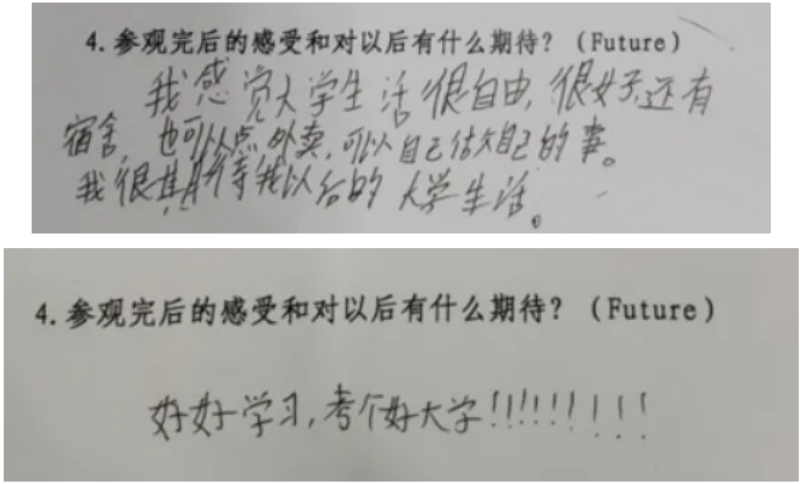 4. 参观完后的感受和对以后有什么期待？（Future）
我感觉大学生活很自由，很好，还有
宿舍，也可以点外卖，可以自己做自己的事。
我很期待我以后的大学生活。
4. 参观完后的感受和对以后有什么期待？（Future）
好好学习，考个好大学!!!!!!!!!